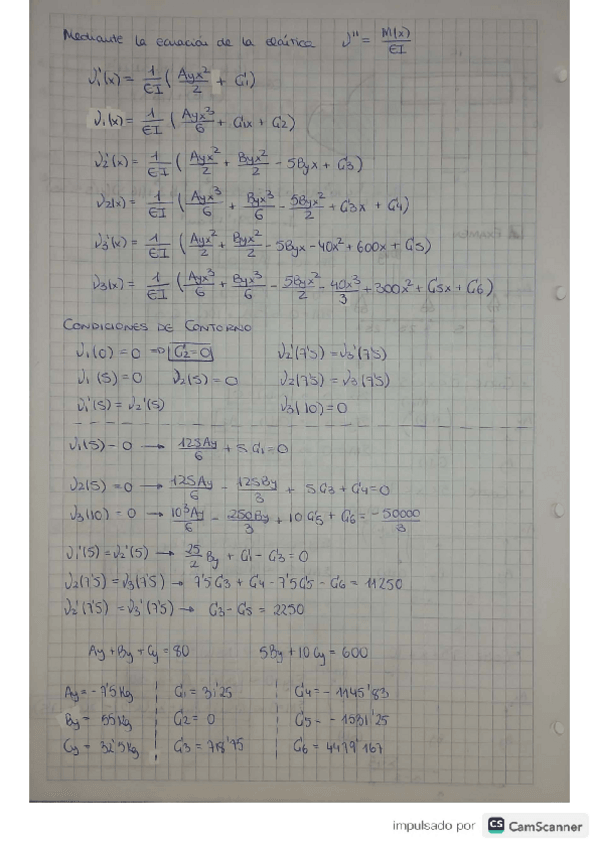 Mediante la ecuación de la elástica v'' = M(x)/EI
v1'(x) = 1/EI ( Ayx²/2 + C1)
v1(x) = 1/EI ( Ayx³/6 + C1x + C2)
v2'(x) = 1/EI ( Ayx²/2 + Byx²/2 - 5Byx + C3)
v2(x) = 1/EI ( Ayx³/6 + Byx³/6 - 5Byx²/2 + C3x + C4)
v3'(x) = 1/EI ( Ayx²/2 + Byx²/2 - 5Byx - 40x² + 600x + C5)
v3(x) = 1/EI ( Ayx³/6 + Byx³/6 - 5Byx²/2 - 40x³/3 + 300x² + C5x + C6)
CONDICIONES DE CONTORNO
v1(0) = 0 => C2=0 v2'(7'5) = v3'(7'5)
v1(5) = 0 v2(5) = 0 v2(7'5) = v3(7'5)
v1'(5) = v2'(5) v3(10) = 0
v1(5) - 0 → 125Ay/6 + 5C1 = 0
v2(5) = 0 → 125Ay/6 - 125By/3 + 5C3 + C4 = 0
v3(10) = 0 → 10³Ay/6 - 250By/3 + 10C5 + C6 = -50000/3
v1'(5) = v2'(5) → 25/2 By + C1 - C3 = 0
v2(7'5) = v3(7'5) → 7'5C3 + C4 - 7'5C5 - C6 = 11250
v2'(7'5) = v3'(7'5) → C3 - C5 = 2250
Ay + By + Cy = 80 5By + 10Cy = 600
Ay = -7'5 Kg C1 = 31'25 C4 = -1145'83
By = 55 Kg C2 = 0 C5 - -1531'25
Cy = 32'5 Kg C3 = 718'75 C6 = 4479'167
impulsado por CS CamScanner